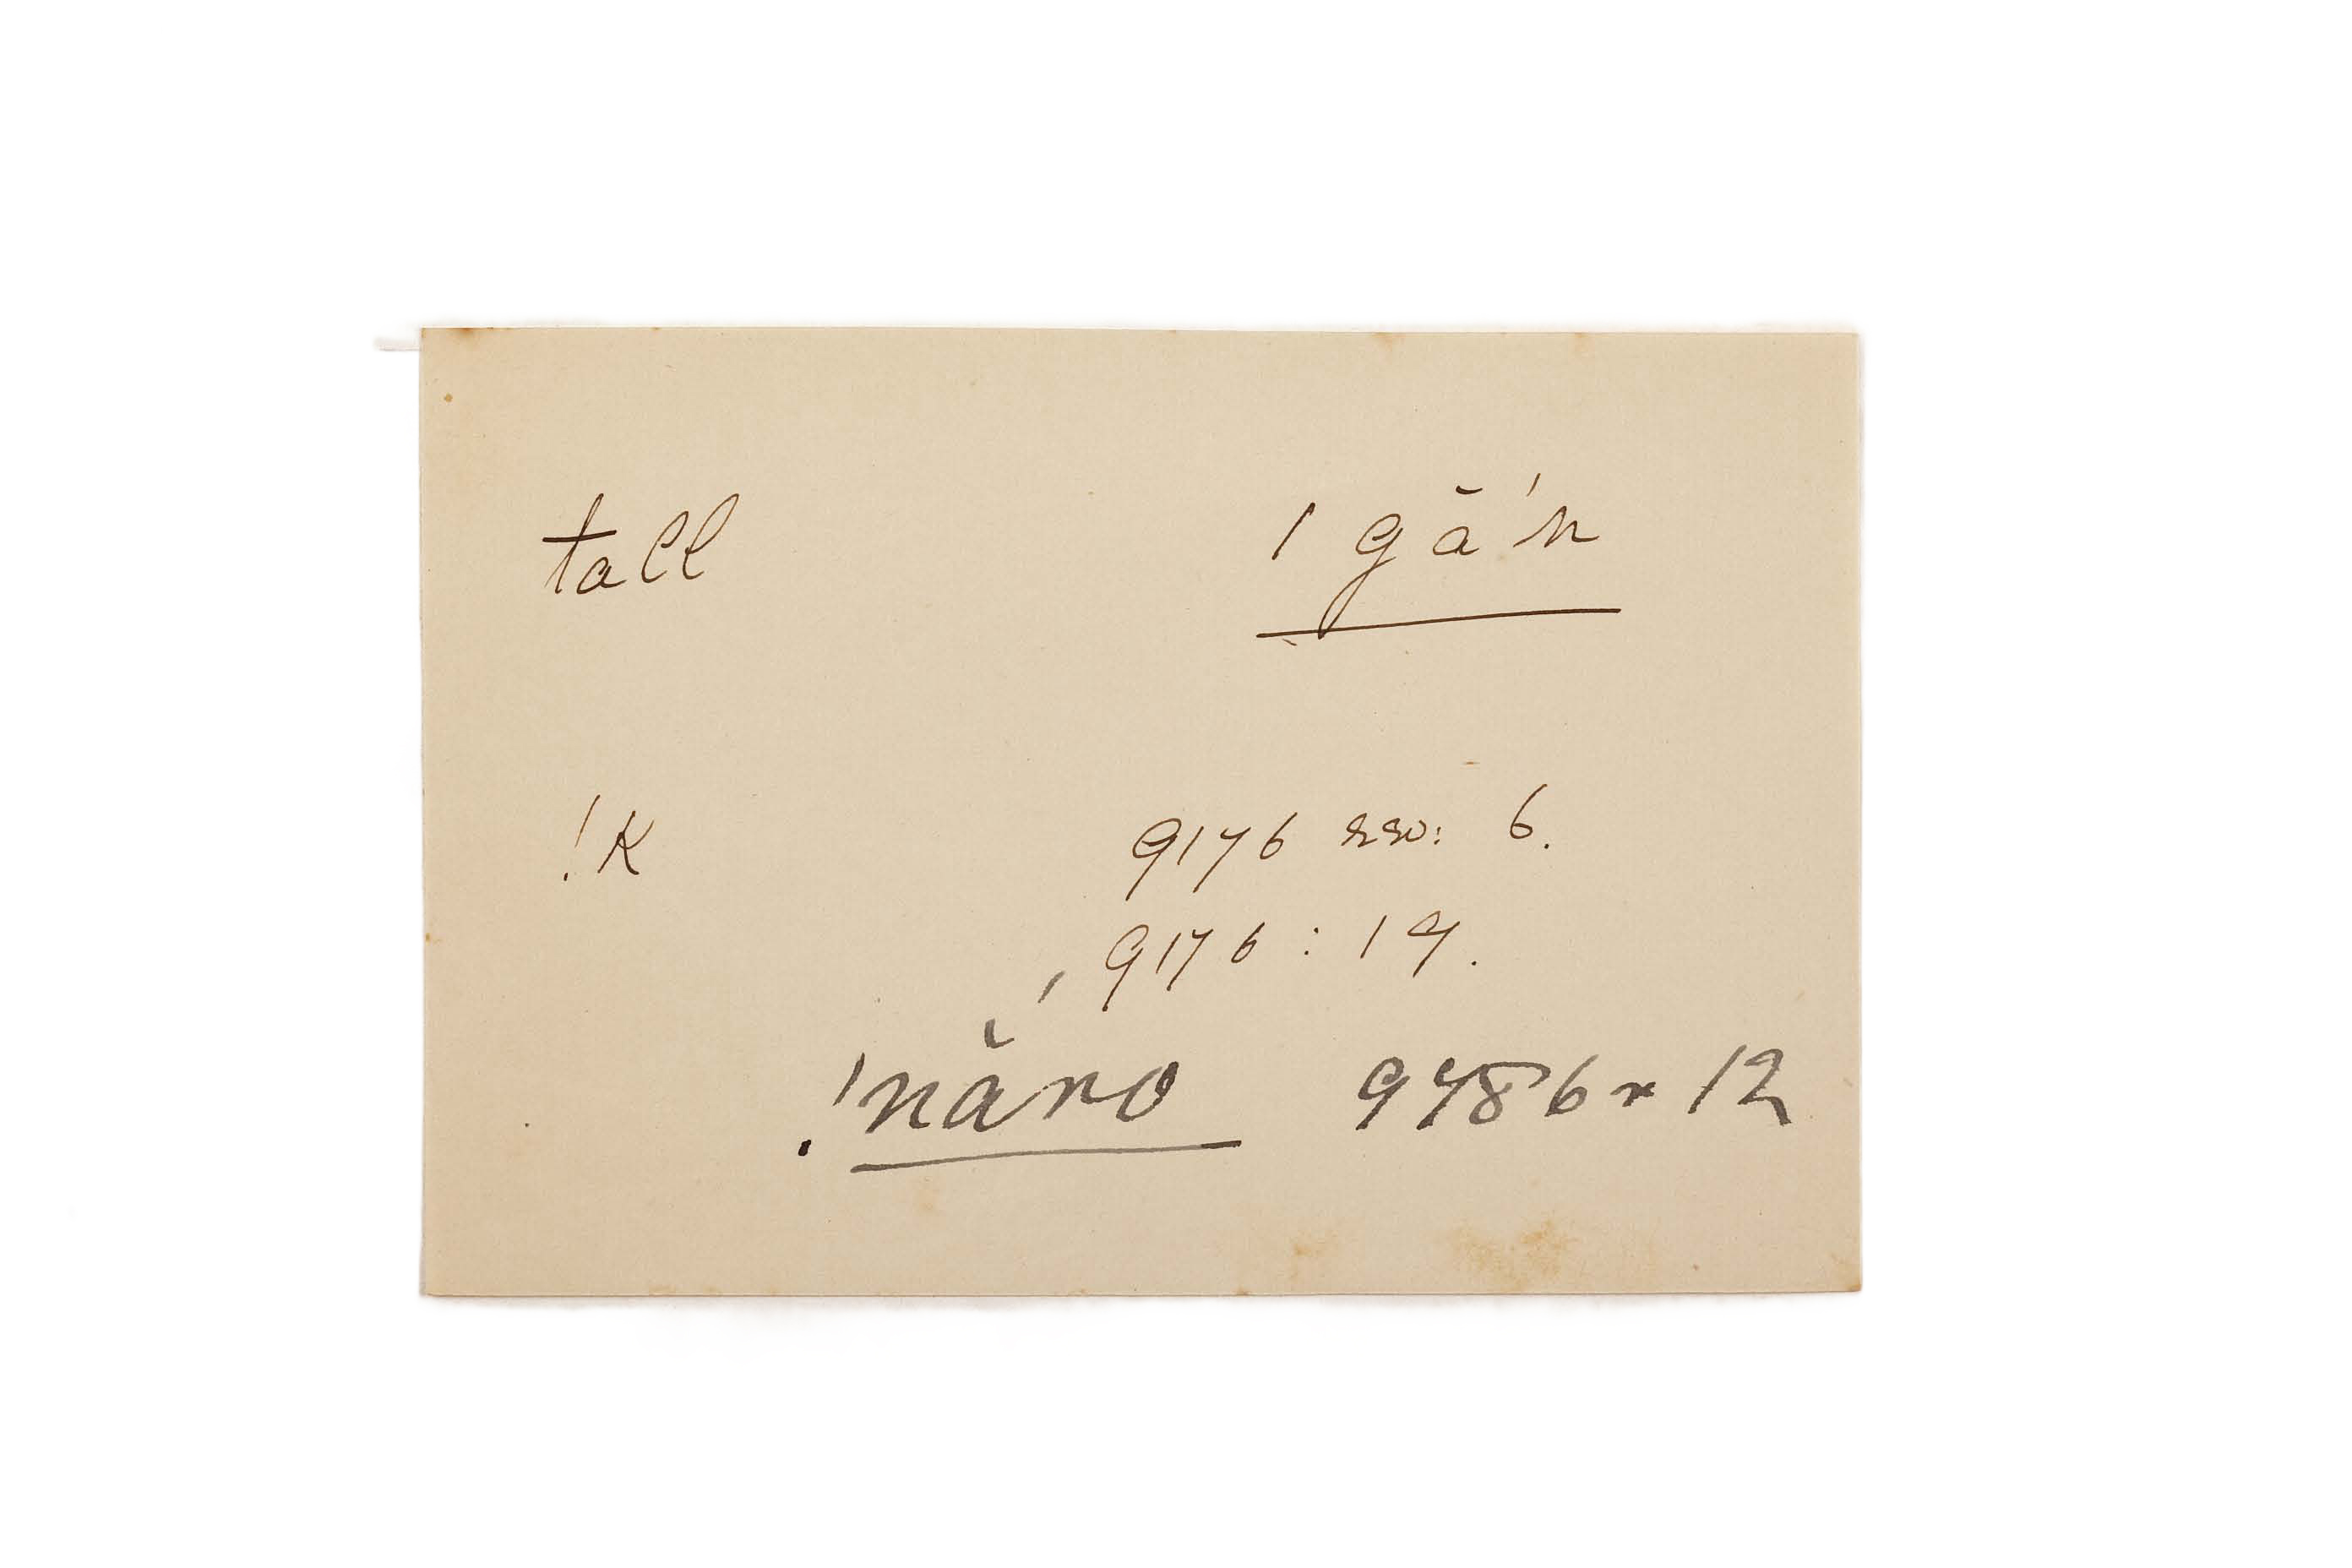 tall ǀ gā́n
!K 9176 rev: 6.
9176 : 19.
!nắro 9786 r 12